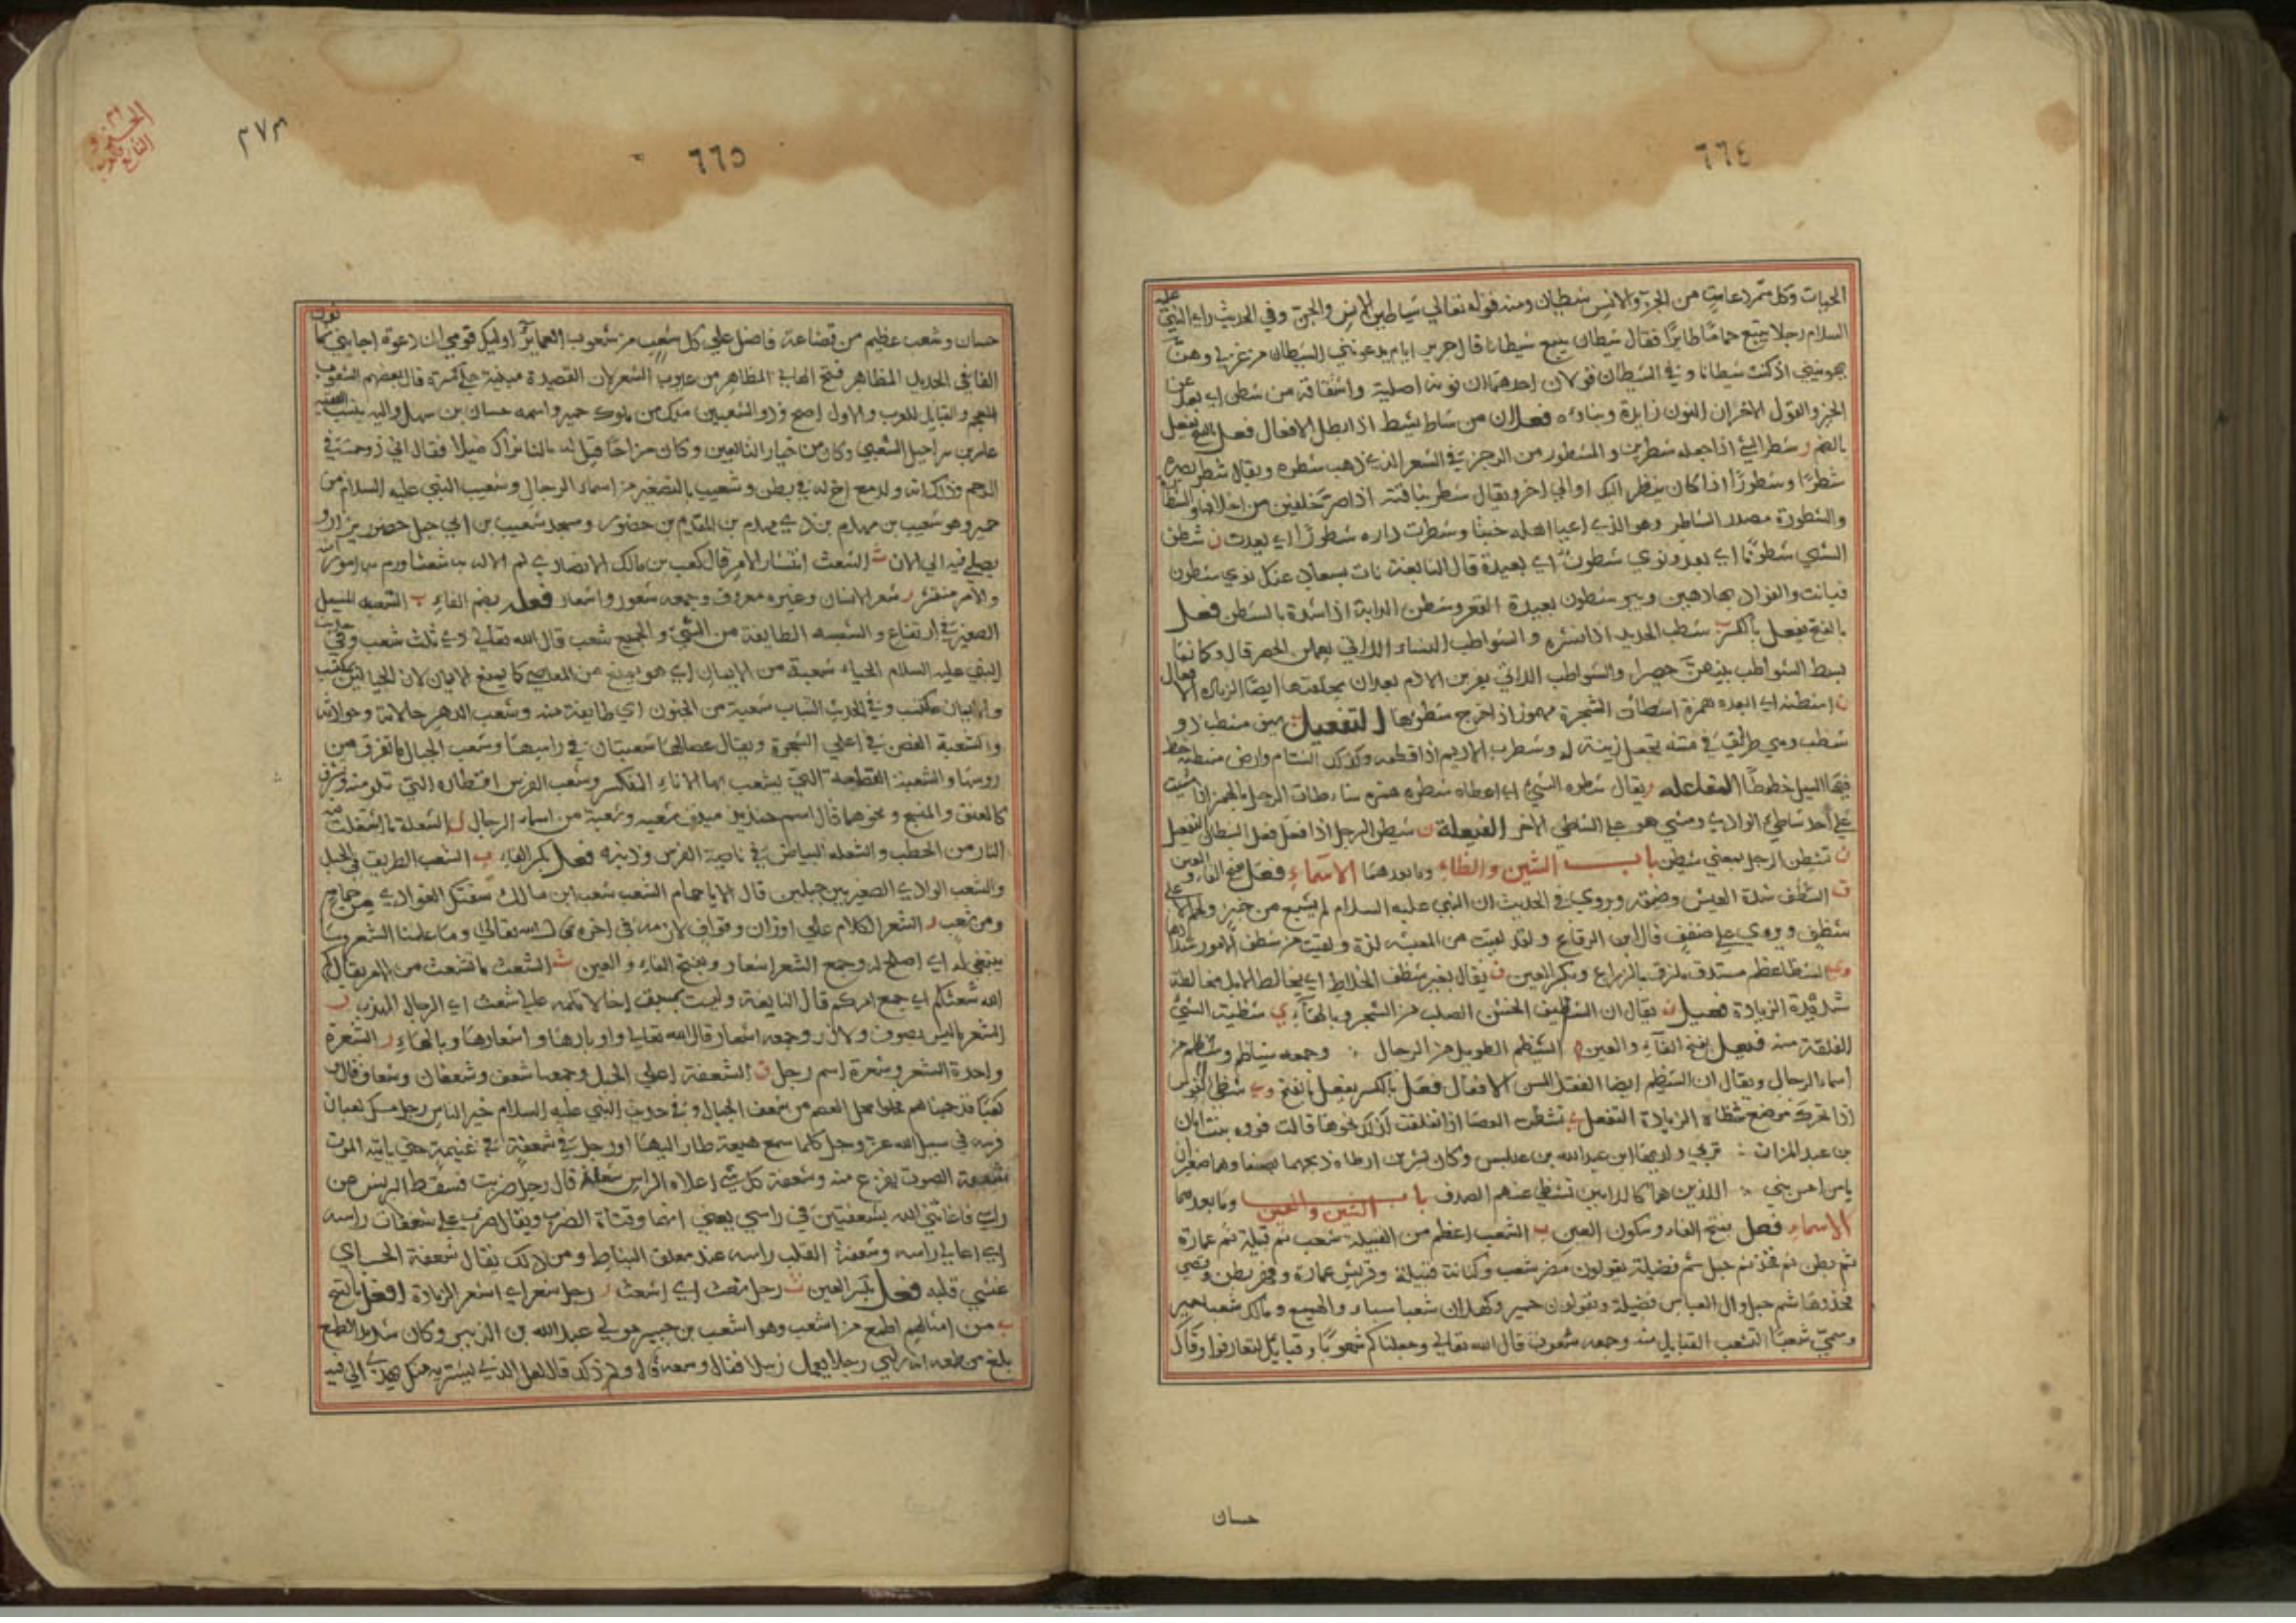 ٦٦٤
الحيات وكل متمرد عات من الجن والانس شيطان ومنه قوله تعالي شياطين الانس والجن وفي الحديث راى النبي عليه
السلام رجلا يتبع حمامًا طايرًا فقال شيطان يتبع شيطانا قال جرير ايام يدعونني الشيطان من غزلي وهن
يهوينني اذ كنت شيطانا وفي الشيطان قولان احدهما ان نونه اصلية واشتقاقه من شطن اي بعد عن
الخير والقول الاخر ان النون زايدة وبناؤه فعلان من شاط يشيط اذا بطل الافعال فعل بالفتح يفعل
بالضم ر شطر الشئ اذا جعله شطرين والمشطور من الرجز في الشعر الذي ذهب شطره ويقال شطر بصره
شطرًا وشطورًا اذا كان ينظر اليك او الي اخر ويقال شطر بناقته اذا صر خلفين من اخلافها
والشطورة مصدر الشاطر وهو الذي اعيا اهله خبثا وشطرت داره شطورًا اي بعدت ن شطن
الشي شطونًا اي بعد ونوي شطون اي بعيدة قال النابغة نات بسعاد عنك نوي شطون
فبانت والفؤاد بها رهين وبير شطون بعيدة القعر وشطن الدابة اذا شده بالشطن فعل
بالفتح يفعل بالكسر ب شطب الجريد اذا نشره والشواطب النساء اللاتي يعملن الحصر قال وكانما
بسط الشواطب بينهن حصيرا والشواطب اللاتي يفرين الادم بعد ان يخلقنها ايضا الزيادة الافعال
ن اشطنه اي ابعده همزة اشطأت الشجرة مهموز اذا اخرج شطوها التفعيل ب سيف مشطب ذو
شطب وهي طرايق في متنه تجعل زينة له وشطرب الاديم اذا قطعه وكذلك السنام وارض مشطبة خط
فيها السيل خطوطًا المفاعلة ر يقال شاطره الشئ اي اعطاه شطره همزة شاطات الرجل بالهمز اذا مشيت
علي احد شاطئ الوادي ومشي هو علي الشاطي الاخر الفيعلة ن شيطن الرجل اذا فعل فعل الشيطان التفعيل
ن تشيطن الرجل بمعني شيطن باب الشين والظاء وما بعدهما الاسماء فعل بفتح الفاء والعين
ف الشظف شدة العيش وضيقه وروي في الحديث ان النبي عليه السلام لم يشبع من خبز ولحم الا علي
شظف ويروي علي ضفف قال ابن الرقاع ولقد لقيت من المعيشة لذة ولقيت من شظف الامور شدادها
وي الشظا عظم مستدق ملزق بالذراع وبكسر العين ف يقال بعير شظف الخلاط اي يخالط الابل مخالطة
شديدة الزيادة فعيل ف يقال ان الشظيف الخشن الصلب من الشجر وبالهاء ي شظية الشئ
الفلقة منه فيعل بفتح الفاء والعين م الشيظم الطويل من الرجال وجمعه شياظم وشيظم من
اسماء الرجال ويقال ان الشيظم ايضا القنفذ المسن الافعال فعل بالكسر يفعل بالفتح وي شظي الفرس
اذا تحرك موضع شظاه الزيادة التفعل ي تشظت العصا اذا انفلقت كذلك نحوها قالت
بن عبد المزان ترثي ولديها ابن عبيد الله بن عباس وكان بسر بن ارطاه ذبحهما بصنعا وهما صغيران
يا من احس بني اللذين هما كالدرتين تشظي عنهما الصدف باب الشين والعين وما بعدهما
الاسماء فعل بفتح الفاء وسكون العين ب الشعب اعظم من القبيلة شعب ثم قبيلة ثم عمارة
ثم بطن ثم فخذ ثم حبل ثم فصيلة يقولون مضر شعب وكنانة قبيلة وقريش عمارة وفهر بطن وقصي
فخذ وهاشم حبل وال العباس فصيلة ويقولون حمير وكهلان شعبا سباء والهميسع ومالك شعبا حمير
وسمي شعبًا لتشعب القبايل منه وجمعه شعوب قال الله تعالي وجعلناكم شعوبًا وقبايل لتعارفوا وقال
حسان
٦٦٥
٢٧٣
حسان وشعب عظيم من قضاعة فاضل علي كل شعب من شعوب العماير اوليك قومي ان دعوة اجابني
الفا في الحديد المظاهر فتح الها في المظاهر من عيوب الشعر لان القصيدة مبنية علي كسرة قال بعضهم الشعوب
للعجم والقبايل للعرب والاول اصح وذو الشعبين ملك من ملوك حمير واسمه حسان بن سهل واليه ينسب الفقيه
عامر بن شراحيل الشعبي وكان من خيار التابعين وكان مزاحًا قيل له مالنا نراك ضيلا فقال اني زوحمت في
الرحم وذلك انه ولد مع اخ له في بطن وشعيب بالتصغير من اسماء الرجال وشعيب النبي عليه السلام من
حمير وهو شعيب بن مهدم بن ذي مهدم بن المقدم بن حضور ومسجد شعيب بن ابي جبل حضور يزار و
يصلي فيه الي الان ث الشعث انتشار الامر قال كعب بن مالك الانصاري لم الاله به شعثا ورم به امور امته
والامر منتشر ر شعر الانسان وغيره معروف وجمعه شعور واشعار فعلة بضم الفاء ب الشعبة المسيل
الصغير في ارتفاع والشعبة الطايفة من الشئ والجميع شعب قال الله تعالي ذي ثلث شعب وفي حديث
النبي عليه السلام الحياء شعبة من الايمان اي هو يمنع من المعاصي كما يمنع الايمان لان الحيا ليس بمكتسب
والايمان مكتسب وفي الحديث الشباب شعبة من الجنون اي طايفة منه وشعب الدهر حالاته وحولاته
والشعبة الغصن في اعلي الشجرة ويقال عصا لها شعبتان في راسها وشعب الجبال ما تفرق من
روسها والشعبة القطعة التي يشعب بها الاناء المنكسر وشعب الفرس اقطاره التي تعلو منه وتشرف
كالعنق والمنسج ونحوهما قال اشم خنذيذ منيف شعبه وشعبة من اسماء الرجال ل الشعلة ما اشتعلت فيه
النار من الحطب والشعلة البياض في ناصية الفرس وذنبه فعل بكسر الفاء ب الشعب الطريق في الجبل
والشعب الوادي الصغير بين جبلين قال الا يا حمام الشعب شعب ابن مالك سقتك الغوادي من حمام
ومن شعب ر الشعر الكلام علي اوزان وقواف لازمة في اخره قال الله تعالي وما علمناه الشعر وما
ينبغي له اي اصلح له وجمع الشعر اشعار وبفتح الفاء والعين ث الشعث ما تشعث من الامر يقال لم
الله شعثكم اي جمع امركم قال النابغة ولست بمستبق اخا لا تلمه علي شعث اي الرجال المهذب ر
الشعر ما ليس بصوف ولا وبر وجمعه اشعار قال الله تعالي واوبارها واشعارها وبالهاء ر الشعرة
واحدة الشعر وشعرة اسم رجل ف الشعفة اعلي الجبل وجمعها شعف وشعفان وشعاف قال
وفي حديث النبي عليه السلام خير الناس رجل ممسك بعنان
فرسه في سبيل الله عز وجل كلما سمع هيعة طار اليها او رجل في شعفة في غنيمة حتي ياتيه الموت
الهيعة الصوت يفزع منه وشعفة كل شي اعلاه الراس شعفة قال رجل ضربت فسقط البرنس عن
راسي فاغاثني الله بشعفتين في راسي يعني انهما وقتاه الضرب ويقال ضرب علي شعفات راسه
اي اعالي راسه وشعفة القلب راسه عند معلق النياط ومن ذلك يقال شعفة الحب اي
غشي قلبه فعل بكسر العين ث رجل شعث اي اشعث ر رجل شعر اي اشعر الزيادة افعل بالفتح
ب من امثالهم اطمع من اشعب وهو اشعب بن جبير مولي عبد الله بن الزبير وكان شديد الطمع
بلغ من طمعه انه راي رجلا يعمل زبيلا فقال وسعه قال ولم ذلك قال لعل الذي يشتريه منك يهدي الي فيه